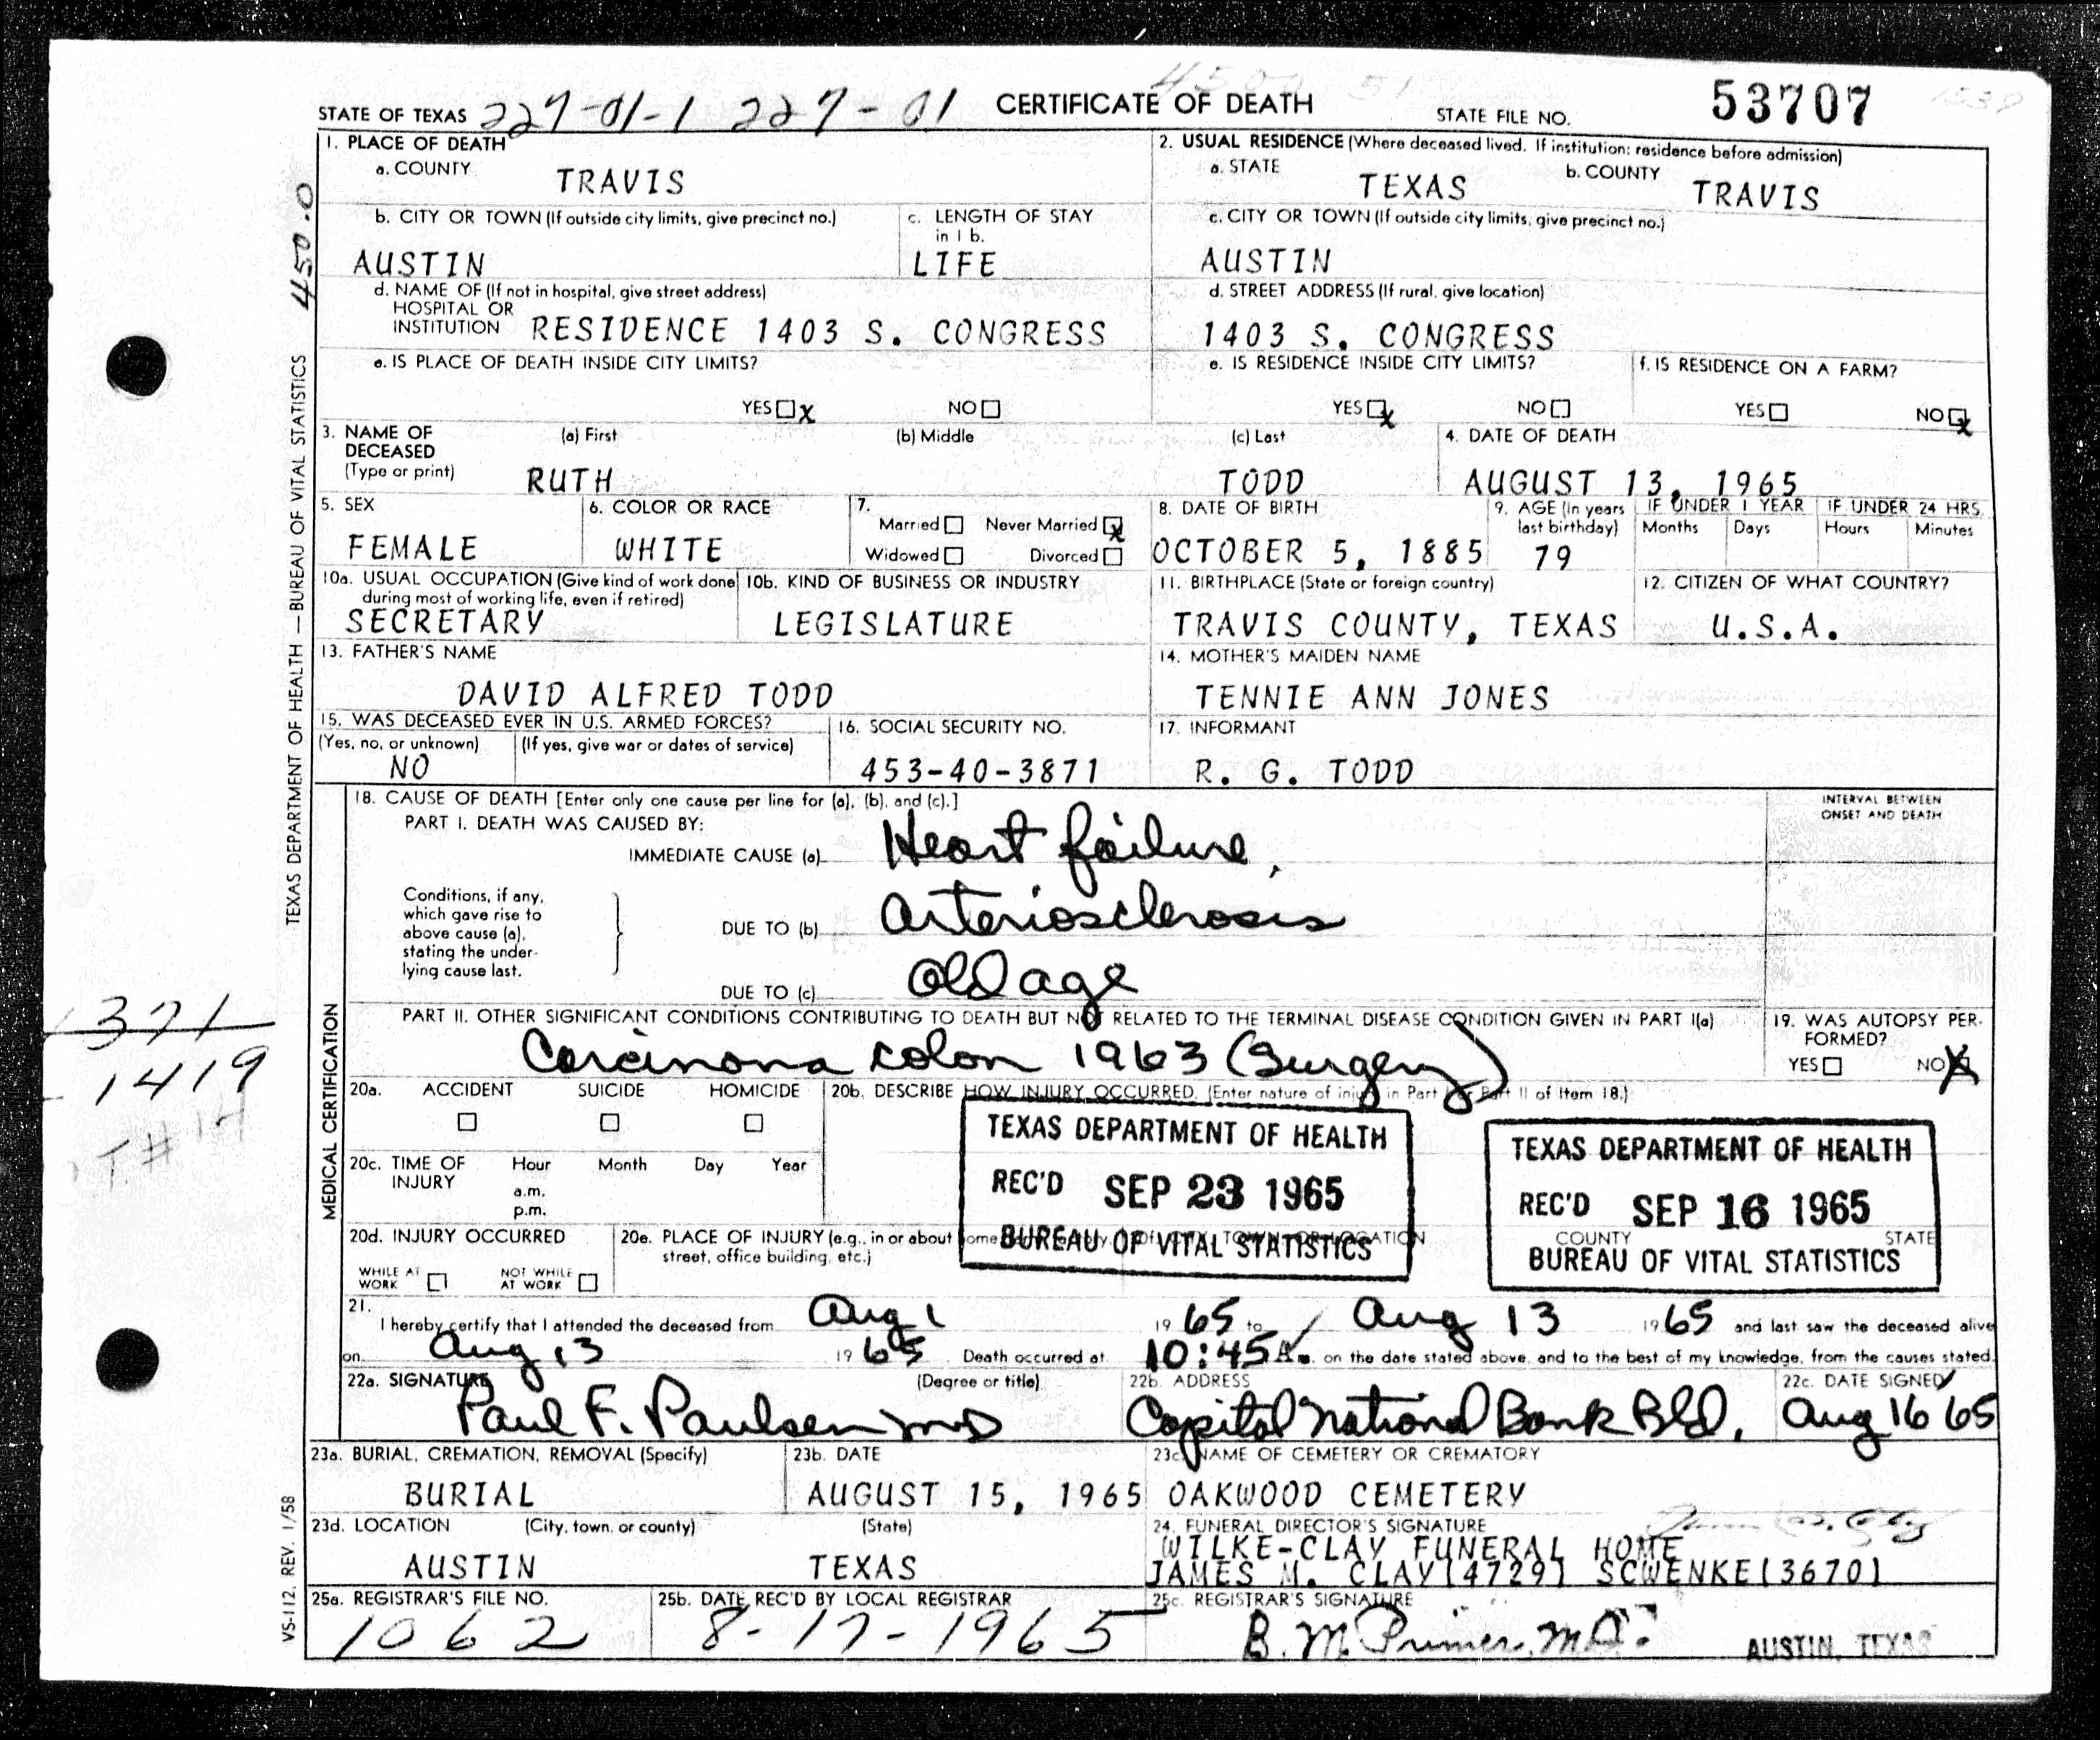 STATE OF TEXAS 227-01-1 227-01 CERTIFICATE OF DEATH STATE FILE NO. 53707
1. PLACE OF DEATH
a. COUNTY TRAVIS
2. USUAL RESIDENCE (Where deceased lived. If institution: residence before admission)
a. STATE TEXAS b. COUNTY TRAVIS
b. CITY OR TOWN (If outside city limits, give precinct no.) AUSTIN
c. LENGTH OF STAY in 1 b. LIFE
c. CITY OR TOWN (If outside city limits, give precinct no.) AUSTIN
d. NAME OF (If not in hospital, give street address)
HOSPITAL OR
INSTITUTION RESIDENCE 1403 S. CONGRESS
d. STREET ADDRESS (If rural, give location)
1403 S. CONGRESS
e. IS PLACE OF DEATH INSIDE CITY LIMITS?
YES X NO
e. IS RESIDENCE INSIDE CITY LIMITS?
YES X NO
f. IS RESIDENCE ON A FARM?
YES NO X
3. NAME OF DECEASED (Type or print)
(a) First (b) Middle (c) Last
RUTH TODD
4. DATE OF DEATH
AUGUST 13, 1965
5. SEX
FEMALE
6. COLOR OR RACE
WHITE
7.
Married Never Married X
Widowed Divorced
8. DATE OF BIRTH
OCTOBER 5, 1885
9. AGE (In years last birthday)
79
IF UNDER 1 YEAR
Months Days
IF UNDER 24 HRS.
Hours Minutes
10a. USUAL OCCUPATION (Give kind of work done during most of working life, even if retired)
SECRETARY
10b. KIND OF BUSINESS OR INDUSTRY
LEGISLATURE
11. BIRTHPLACE (State or foreign country)
TRAVIS COUNTY, TEXAS
12. CITIZEN OF WHAT COUNTRY?
U.S.A.
13. FATHER'S NAME
DAVID ALFRED TODD
14. MOTHER'S MAIDEN NAME
TENNIE ANN JONES
15. WAS DECEASED EVER IN U.S. ARMED FORCES?
(Yes, no, or unknown) (If yes, give war or dates of service)
NO
16. SOCIAL SECURITY NO.
453-40-3871
17. INFORMANT
R. G. TODD
18. CAUSE OF DEATH [Enter only one cause per line for (a), (b), and (c).]
INTERVAL BETWEEN
ONSET AND DEATH
PART I. DEATH WAS CAUSED BY:
IMMEDIATE CAUSE (a) Heart failure,
Conditions, if any,
which gave rise to
above cause (a),
stating the under-
lying cause last.
DUE TO (b) Arteriosclerosis
DUE TO (c) Old age
PART II. OTHER SIGNIFICANT CONDITIONS CONTRIBUTING TO DEATH BUT NOT RELATED TO THE TERMINAL DISEASE CONDITION GIVEN IN PART I(a)
Carcinona colon 1963 (Surgery)
19. WAS AUTOPSY PER-
FORMED?
YES NO X
20a. ACCIDENT SUICIDE HOMICIDE
20b. DESCRIBE HOW INJURY OCCURRED. (Enter nature of injury in Part I or Part II of Item 18.)
20c. TIME OF INJURY
Hour Month Day Year
a.m.
p.m.
TEXAS DEPARTMENT OF HEALTH
REC'D SEP 23 1965
BUREAU OF VITAL STATISTICS
TEXAS DEPARTMENT OF HEALTH
REC'D SEP 16 1965
BUREAU OF VITAL STATISTICS
20d. INJURY OCCURRED
WHILE AT WORK NOT WHILE AT WORK
20e. PLACE OF INJURY (e.g., in or about home
street, office building, etc.)
TOWN, OR LOCATION COUNTY STATE
21.
I hereby certify that I attended the deceased from Aug 1 1965 to Aug 13 1965 and last saw the deceased alive
on Aug 13 1965. Death occurred at 10:45 A m. on the date stated above, and to the best of my knowledge, from the causes stated.
22a. SIGNATURE (Degree or title)
Paul F. Paulsen MD
22b. ADDRESS
Capital National Bank Bld.
22c. DATE SIGNED
Aug 16 65
23a. BURIAL, CREMATION, REMOVAL (Specify)
BURIAL
23b. DATE
AUGUST 15, 1965
23c. NAME OF CEMETERY OR CREMATORY
OAKWOOD CEMETERY
23d. LOCATION (City, town, or county) (State)
AUSTIN TEXAS
24. FUNERAL DIRECTOR'S SIGNATURE
WILKE-CLAY FUNERAL HOME
JAMES M. CLAY(4729) SCWENKE(3670)
25a. REGISTRAR'S FILE NO.
1062
25b. DATE REC'D BY LOCAL REGISTRAR
8-17-1965
25c. REGISTRAR'S SIGNATURE
B. M. Primer, M.D. AUSTIN, TEXAS
TEXAS DEPARTMENT OF HEALTH — BUREAU OF VITAL STATISTICS 450.0
MEDICAL CERTIFICATION
VS-112. REV. 1/58
371
1419